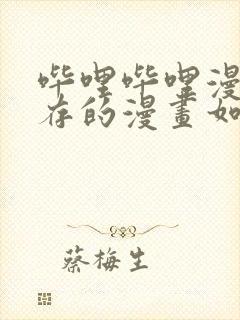 哔哩哔哩漫
存的漫畫如
蔡梅生